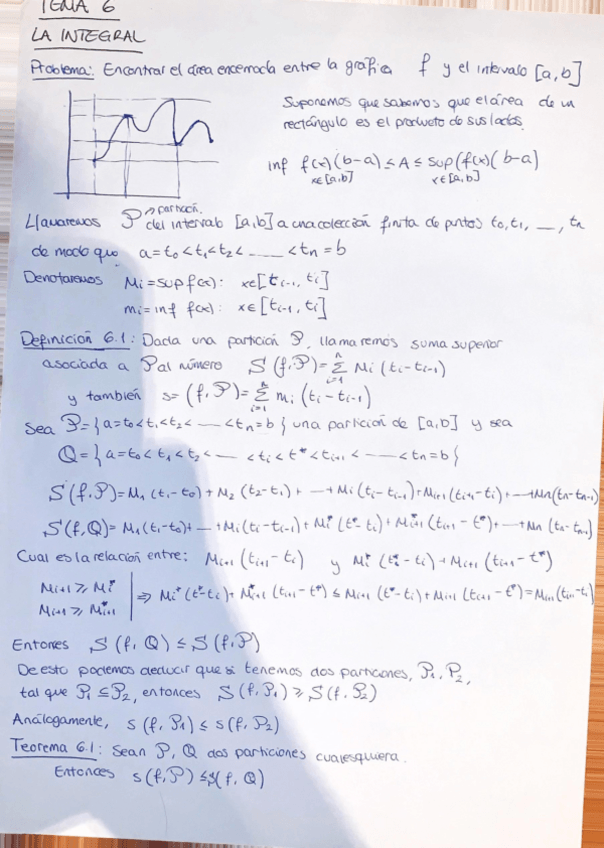 TEMA 6
LA INTEGRAL
Problema: Encontrar el área encerrada entre la gráfica f y el intervalo [a,b]
Suponemos que sabemos que el área de un
rectángulo es el producto de sus lados.
inf f(x)(b-a) ≤ A ≤ sup (f(x)(b-a)
x∈[a,b] x∈[a,b]
partición.
Llamaremos P del intervalo [a,b] a una colección finita de puntos t₀, t₁, —, tn
de modo que a=t₀<t₁<t₂< —— <tn=b
Denotaremos Mi = sup f(x): x∈[ti-1, ti]
mi = inf f(x): x∈[ti-1, ti]
Definición 6.1: Dada una partición P, llamaremos suma superior
asociada a P al número S(f,P) = Σ Mi (ti - ti-1)
y también s= (f,P) = Σ mi (ti - ti-1)
Sea P={a=t₀<t₁<t₂< —— <tn=b} una partición de [a,b] y sea
Q={a=t₀<t₁<t₂< — <ti<t*<ti+1< —— <tn=b}
S(f,P)=M₁(t₁-t₀)+M₂(t₂-t₁)+ —+Mi(ti-ti-1)+Mi+1(ti+1-ti)+—+Mn(tn-tn-1)
S(f,Q)=M₁(t₁-t₀)+ —+Mi(ti-ti-1)+Mi*(t*-ti)+M*i+1(ti+1-t*)+—+Mn(tn-tn-1)
Cual es la relación entre: Mi+1(ti+1-ti) y Mi*(ti*-ti)+Mi+1(ti+1-t*)
Mi+1 ≥ Mi*
Mi+1 ≥ M*i+1
⇒ Mi*(t*-ti)+M*i+1(ti+1-t*) ≤ Mi+1(t*-ti)+Mi+1(ti+1-t*)=Mi+1(ti+1-ti)
Entonces S(f,Q) ≤ S(f,P)
De esto podemos deducir que si tenemos dos particiones, P₁, P₂,
tal que P₁ ⊆ P₂, entonces S(f,P₁) ≥ S(f,P₂)
Análogamente, s(f,P₁) ≤ s(f,P₂)
Teorema 6.1: Sean P, Q dos particiones cualesquiera.
Entonces s(f,P) ≤ S(f,Q)